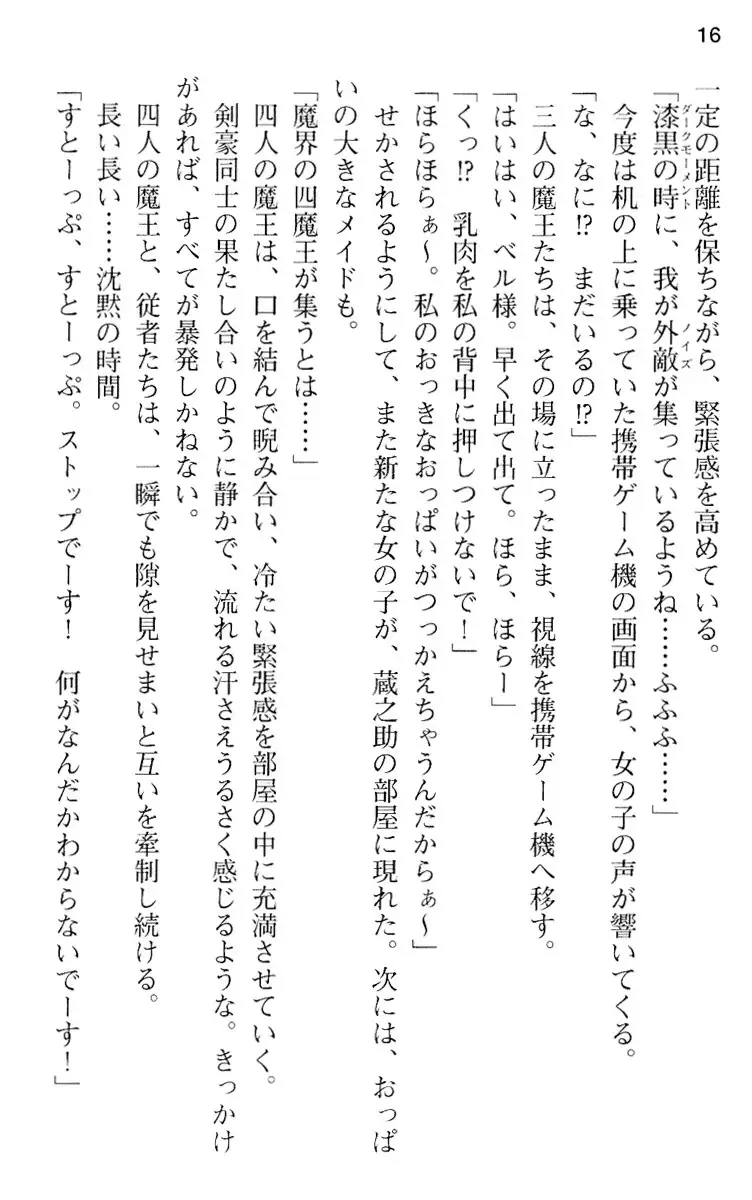 16
一定の距離を保ちながら、緊張感を高めている。
「漆黒の時に、我が外敵が集っているようね……ふふふ……」
ダークモーメント
ノイズ
今度は机の上に乗っていた携帯ゲーム機の画面から、女の子の声が響いてくる。
「な、なに!?　まだいるの!?」
三人の魔王たちは、その場に立ったまま、視線を携帯ゲーム機へ移す。
「はいはい、ベル様。早く出て出て。ほら、ほらー」
「くっ!?　乳肉を私の背中に押しつけないで！」
「ほらほらぁ〜。私のおっきなおっぱいがつっかえちゃうんだからぁ〜」
せかされるようにして、また新たな女の子が、蔵之助の部屋に現れた。次には、おっぱ
いの大きなメイドも。
「魔界の四魔王が集うとは……」
四人の魔王は、口を結んで睨み合い、冷たい緊張感を部屋の中に充満させていく。
剣豪同士の果たし合いのように静かで、流れる汗さえうるさく感じるような。きっかけ
があれば、すべてが暴発しかねない。
四人の魔王と、従者たちは、一瞬でも隙を見せまいと互いを牽制し続ける。
長い長い……沈黙の時間。
「すとーっぷ、すとーっぷ。ストップでーす！　何がなんだかわからないでーす！」